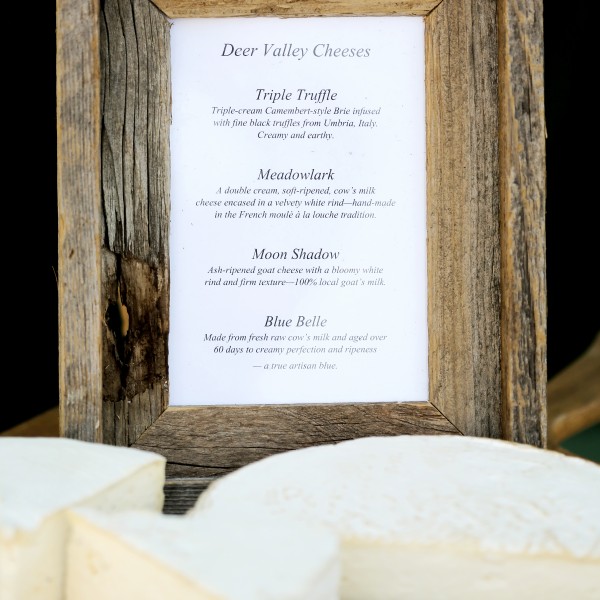 Deer Valley Cheeses
Triple Truffle
Triple-cream Camembert-style Brie infused
with fine black truffles from Umbria, Italy.
Creamy and earthy.
Meadowlark
A double cream, soft-ripened, cow's milk
cheese encased in a velvety white rind—hand-made
in the French moulé à la louche tradition.
Moon Shadow
Ash-ripened goat cheese with a bloomy white
rind and firm texture—100% local goat's milk.
Blue Belle
Made from fresh raw cow's milk and aged over
60 days to creamy perfection and ripeness
— a true artisan blue.